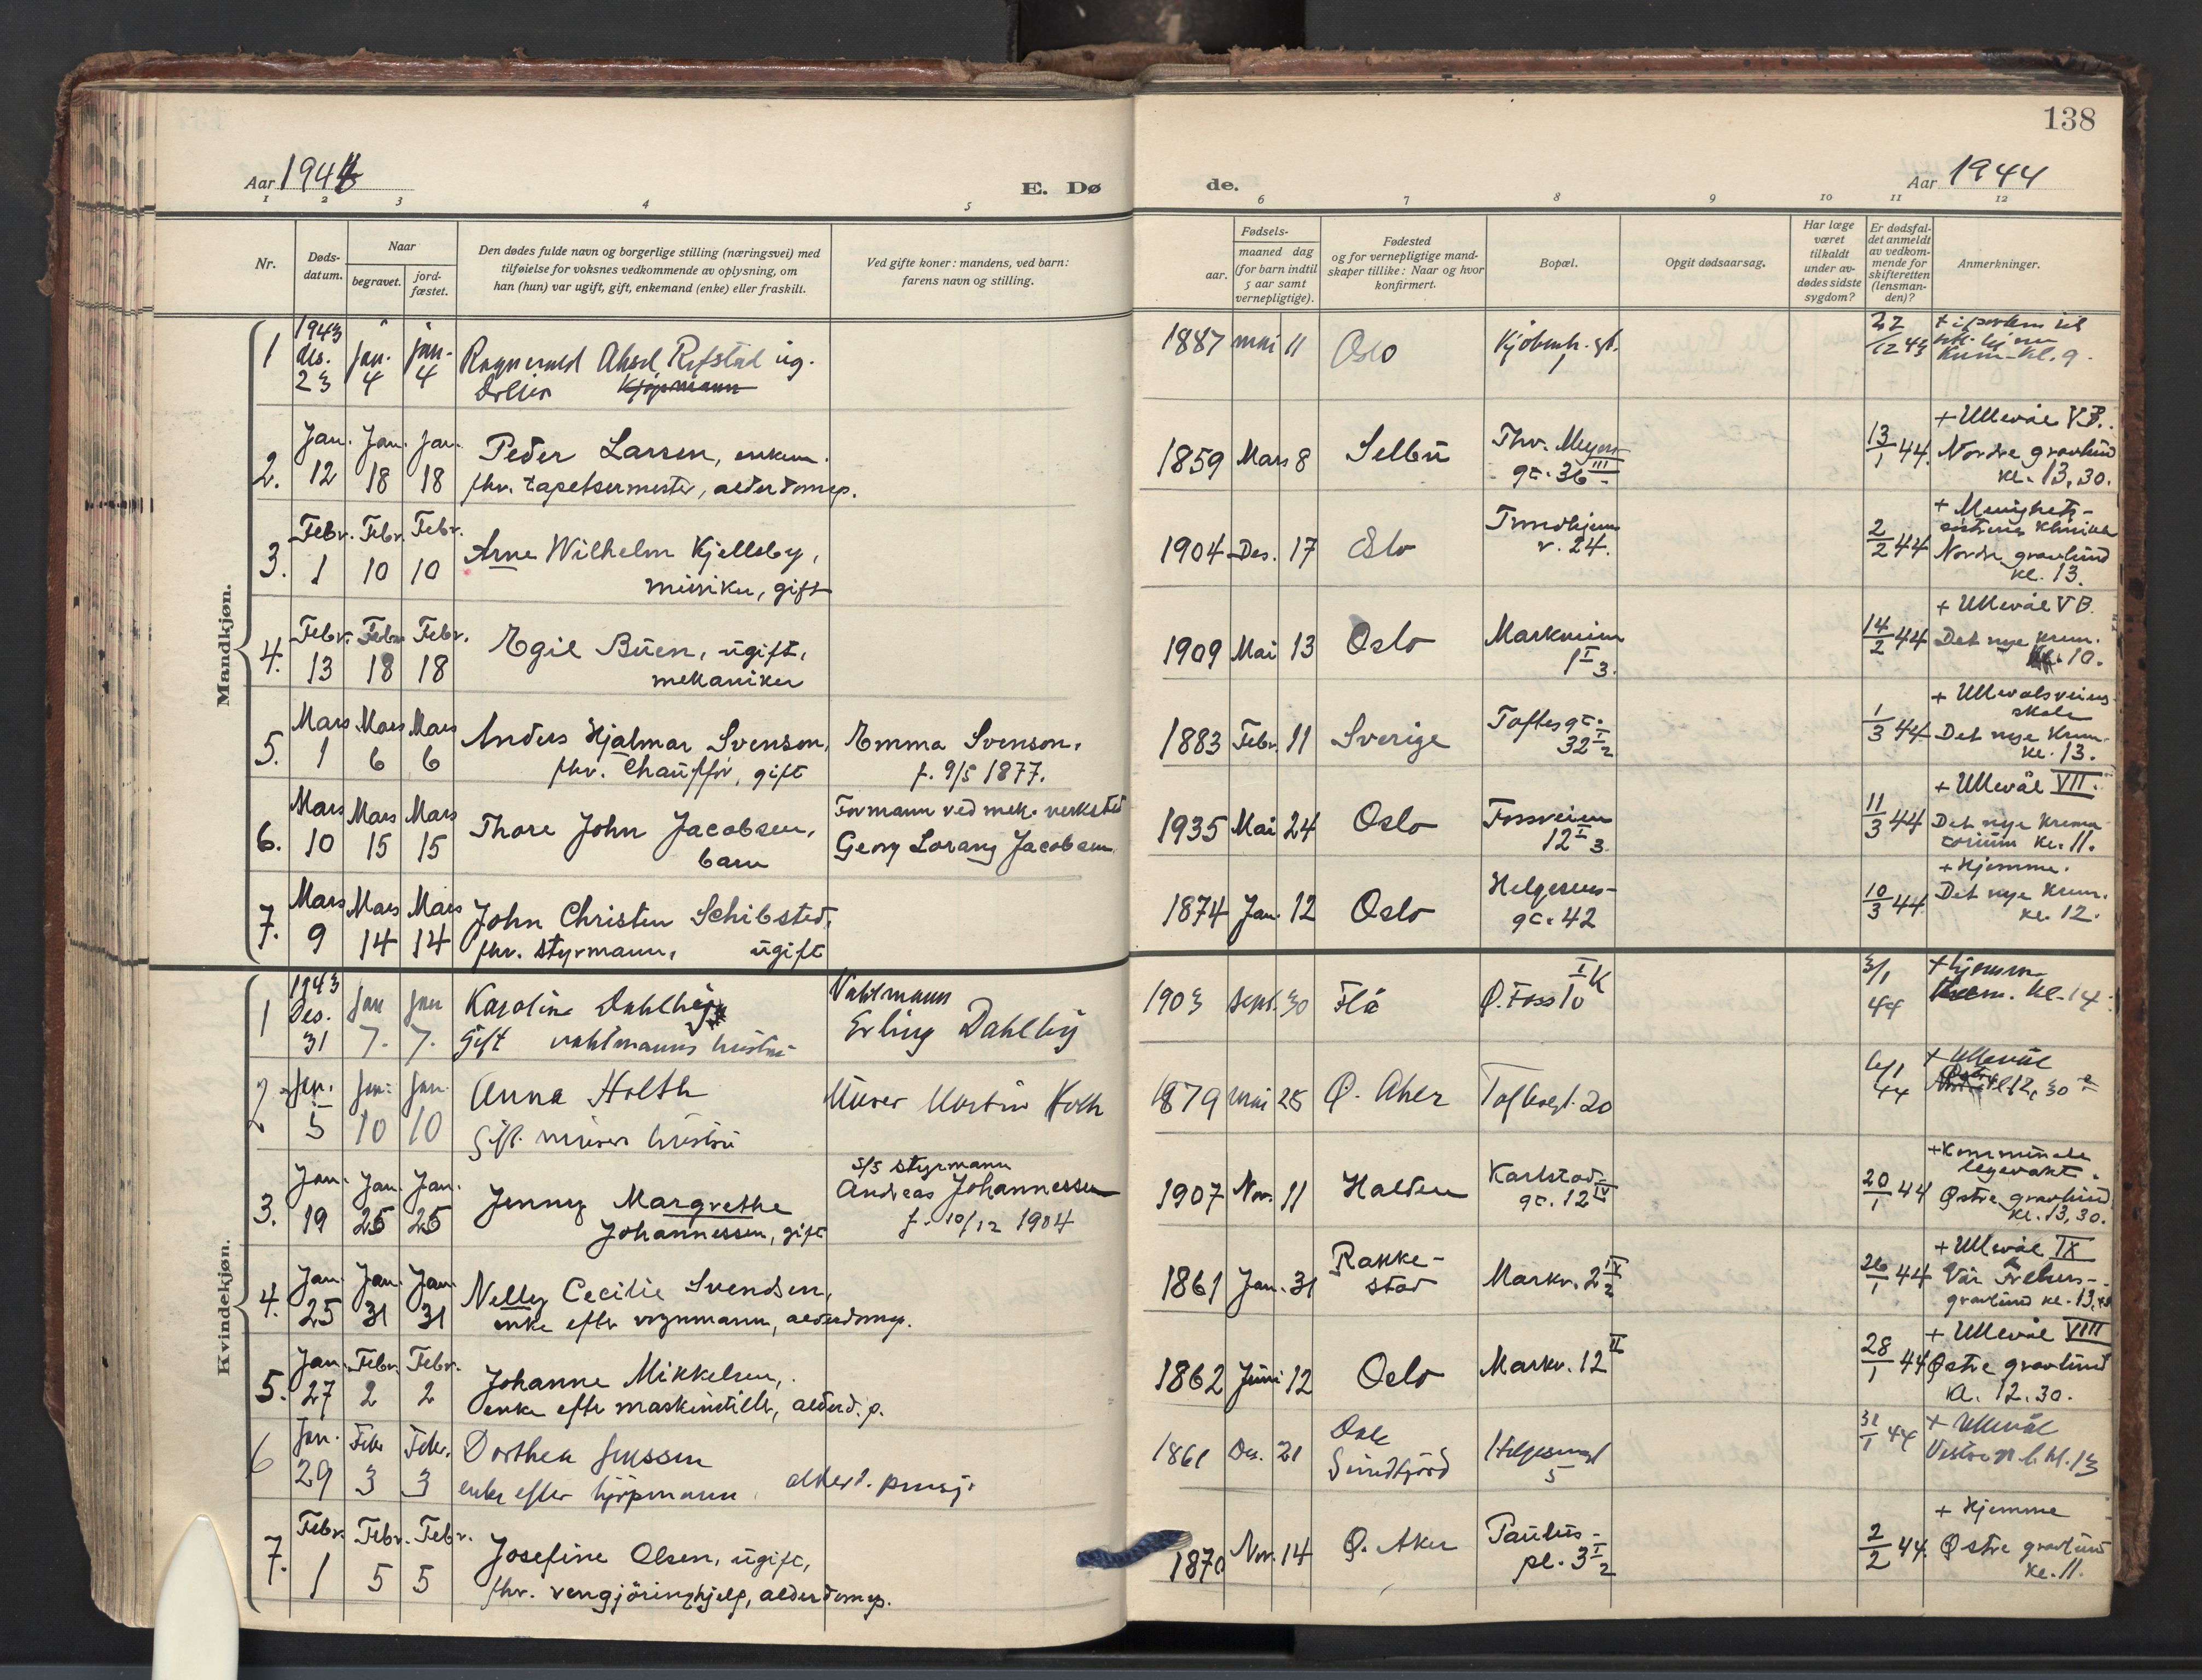 138
Aar 1944
E. Dø
de.
Aar 1944
1 2 3 4 5 6 7 8 9 10 11 12
Nr.
Døds-
datum.
Naar
begravet.
jord-
fæstet.
Den dødes fulde navn og borgerlige stilling (næringsvei) med
tilføielse for voksnes vedkommende av oplysning, om
han (hun) var ugift, gift, enkemand (enke) eller fraskilt.
Ved gifte koner: mandens, ved barn:
farens navn og stilling.
Fødsels-
aar.
maaned dag
(for barn indtil
5 aar samt
vernepligtige).
Fødested
og for vernepligtige mand-
skaper tillike: Naar og hvor
konfirmert.
Bopæl.
Opgit dødsaarsag.
Har læge
været
tilkaldt
under av-
dødes sidste
sygdom?
Er dødsfal-
det anmeldt
av vedkom-
mende for
skifteretten
(lensman-
den)?
Anmerkninger.
Mandkjøn.
1 1943 des. 23 jan. 4 jan. 4
Refstad ug.
Kjøpmann
1887 mai 11 Oslo Kjøbenh. gt. 1
Krem. kl. 9.
2. Jan. 12 Jan. 18 Jan. 18
Peder Larsen, enkem.
fhv. tapetsermester, alderdomsp.
1859 Mars 8 Selbu Thv. Meyers
gt. 36 III
13/1 44.
+ Ullevål VB.
Nordre gravlund
kl. 13,30.
3. Febr. 1 Febr. 10 Febr. 10
Arne Wilhelm Kjellsby,
musiker, gift
1904 Des. 17 Oslo Trondhjems
v. 24.
2/2 44
+ Menighets-
søstrenes klinikk
Nordre gravlund
kl. 13.
4. Febr. 13 Febr. 18 Febr. 18
Egil Buen, ugift,
mekaniker
1909 Mai 13 Oslo Markveien
1 I 3.
14/2 44
+ Ullevål VB.
Det nye krem.
kl. 10.
5. Mars 1 Mars 6 Mars 6
Anders Hjalmar Svenson,
fhv. Chauffør, gift
Emma Svenson,
f. 9/5 1877.
1883 Febr. 11 Sverige Toftesgt.
32 I 2
1/3 44
+ Ullevålsveiens
skole
Det nye Krem.
kl. 13.
6. Mars 10 Mars 15 Mars 15
Thore John Jacobsen,
barn
Formann ved mek. verksted
Georg Lorang Jacobsen
1935 Mai 24 Oslo Fossveien
12 I 3
11/3 44
+ Ullevål VII.
Det nye krema-
torium kl. 11.
7. Mars 9 Mars 14 Mars 14
John Christen Schibsted,
fhv. styrmann, ugift
1874 Jan. 12 Oslo Helgesens-
gt. 42
10/3 44
+ Hjemme.
Det nye krem.
kl. 12.
Kvindekjøn.
1 1943 Des. 31 jan 7. jan 7.
Karoline Dahlby
gift vaktmanns hustru
Vaktmann
Erling Dahlby
1903 sept. 30 Flå Ø. Foss 10 I K
3/1 44
+ hjemme
Krem. kl. 14
2 Jan. 5 jan. 10 jan. 10
Anna Holth
gift. murers hustru
Murer Martin Holth
1879 mai 28 Ø. Aker Toftesgt. 20
6/1 44
+ Ullevål
kl 12,30
3. Jan. 19 Jan. 25 Jan. 25
Jenny Margrethe
Johannessen, gift
S/S styrmann
Andreas Johannessen
f. 10/12 1904
1907 Nov. 11 Halden Karlstad-
gt. 12 IV
20/1 44
+ Kommunale
legevakt.
Østre gravlund
kl. 13,30.
4. Jan. 25 Jan. 31 Jan. 31
Nelly Cecilie Svendsen,
enke efter vognmann, alderdomsp.
1861 Jan. 31 Rakke-
stad Markv. 2 IV 2
26/1 44
+ Ullevål IX
Vår Frelsers-
gravlund kl. 13,45
5. Jan. 27 Febr. 2 Febr. 2
Johanne Mikkelsen,
enke efter maskinstiller, alderd. p.
1862 Juni 12 Oslo Markv. 12 II
28/1 44
+ Ullevål VIII
Østre gravlund
kl. 12.30.
6 Jan. 29 Febr 3 Febr. 3
Dorthea Jenssen
enke efter kjøpmann alderd. pensj.
1861 Des. 21
Sundfjord Helgesensgt
5
31/1 44
+ Ullevål
Vestre gr.l. kl. 13
7. Febr. 1 Febr. 5 Febr. 5
Josefine Olsen, ugift,
fhv. rengjøringhjelp, alderdomsp.
1870 Nov. 14 Ø. Aker Paulus-
pl. 3 I 2
2/2 44.
+ Hjemme
Østre gravlund
kl. 11.